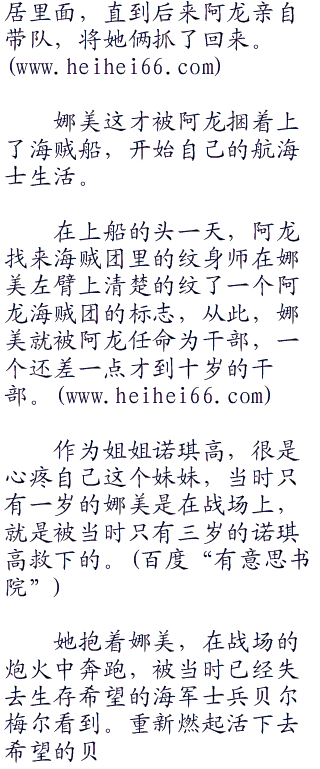 居里面，直到后来阿龙亲自
带队，将她俩抓了回来。
(www.heihei66.com)
娜美这才被阿龙捆着上
了海贼船，开始自己的航海
士生活。
在上船的头一天，阿龙
找来海贼团里的纹身师在娜
美左臂上清楚的纹了一个阿
龙海贼团的标志，从此，娜
美就被阿龙任命为干部，一
个还差一点才到十岁的干
部。(www.heihei66.com)
作为姐姐诺琪高，很是
心疼自己这个妹妹，当时只
有一岁的娜美是在战场上，
就是被当时只有三岁的诺琪
高救下的。(百度“有意思书
院”)
她抱着娜美，在战场的
炮火中奔跑，被当时已经失
去生存希望的海军士兵贝尔
梅尔看到。重新燃起活下去
希望的贝